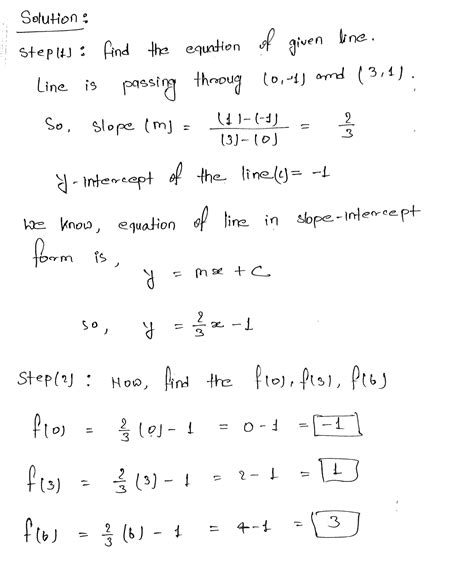 Solution:
Step(1): find the equation of given line.
Line is passing throug (0,-1) and (3,1).
So, slope (m) = (1)-(-1) / (3)-(0) = 2/3
y-intercept of the line(c) = -1
We know, equation of line in slope-intercept
form is,
y = mx + c
so, y = 2/3 x - 1
Step(2): Now, find the f(0), f(3), f(6)
f(0) = 2/3 (0) - 1 = 0-1 = -1
f(3) = 2/3 (3) - 1 = 2-1 = 1
f(6) = 2/3 (6) - 1 = 4-1 = 3